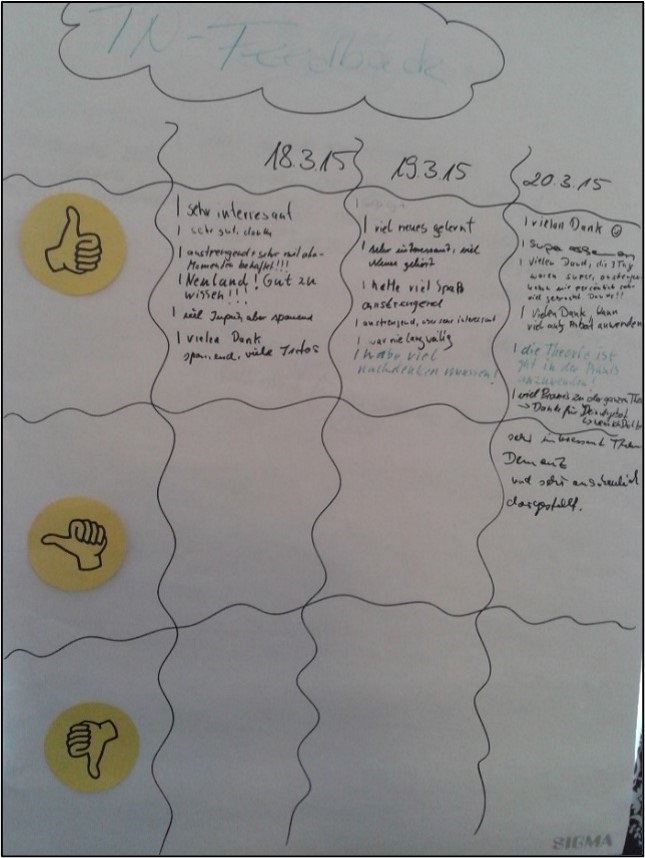 TN-Feedback
18.3.15
19.3.15
20.3.15
| sehr interresant
| sehr gut, danke
| anstrengend + sehr viel aha-
Momenten behaftet!!!
| Neuland! Gut zu
wissen!!!
| viel Input, aber spannend
| vielen Dank
spannend, viele Infos
| viel neues gelernt
| sehr interessant, viel
neues gehört
| hatte viel Spaß
anstrengend
| anstrengend, aber sehr interessant
| war nie langweilig
| habe viel
nachdenken müssen!
| vielen Dank ☺
| super
| vielen Dank, die 3 Tage
waren super,
viel gebracht Danke!!
| Vielen Dank, kann
viel auf Arbeit anwenden
| die Theorie ist
gut in der Praxis
anzuwenden!
| viel Praxis zu der ganzen
→ Danke für
sehr interessant
Demenz
und sehr anschaulich
dargestellt.
SIGMA